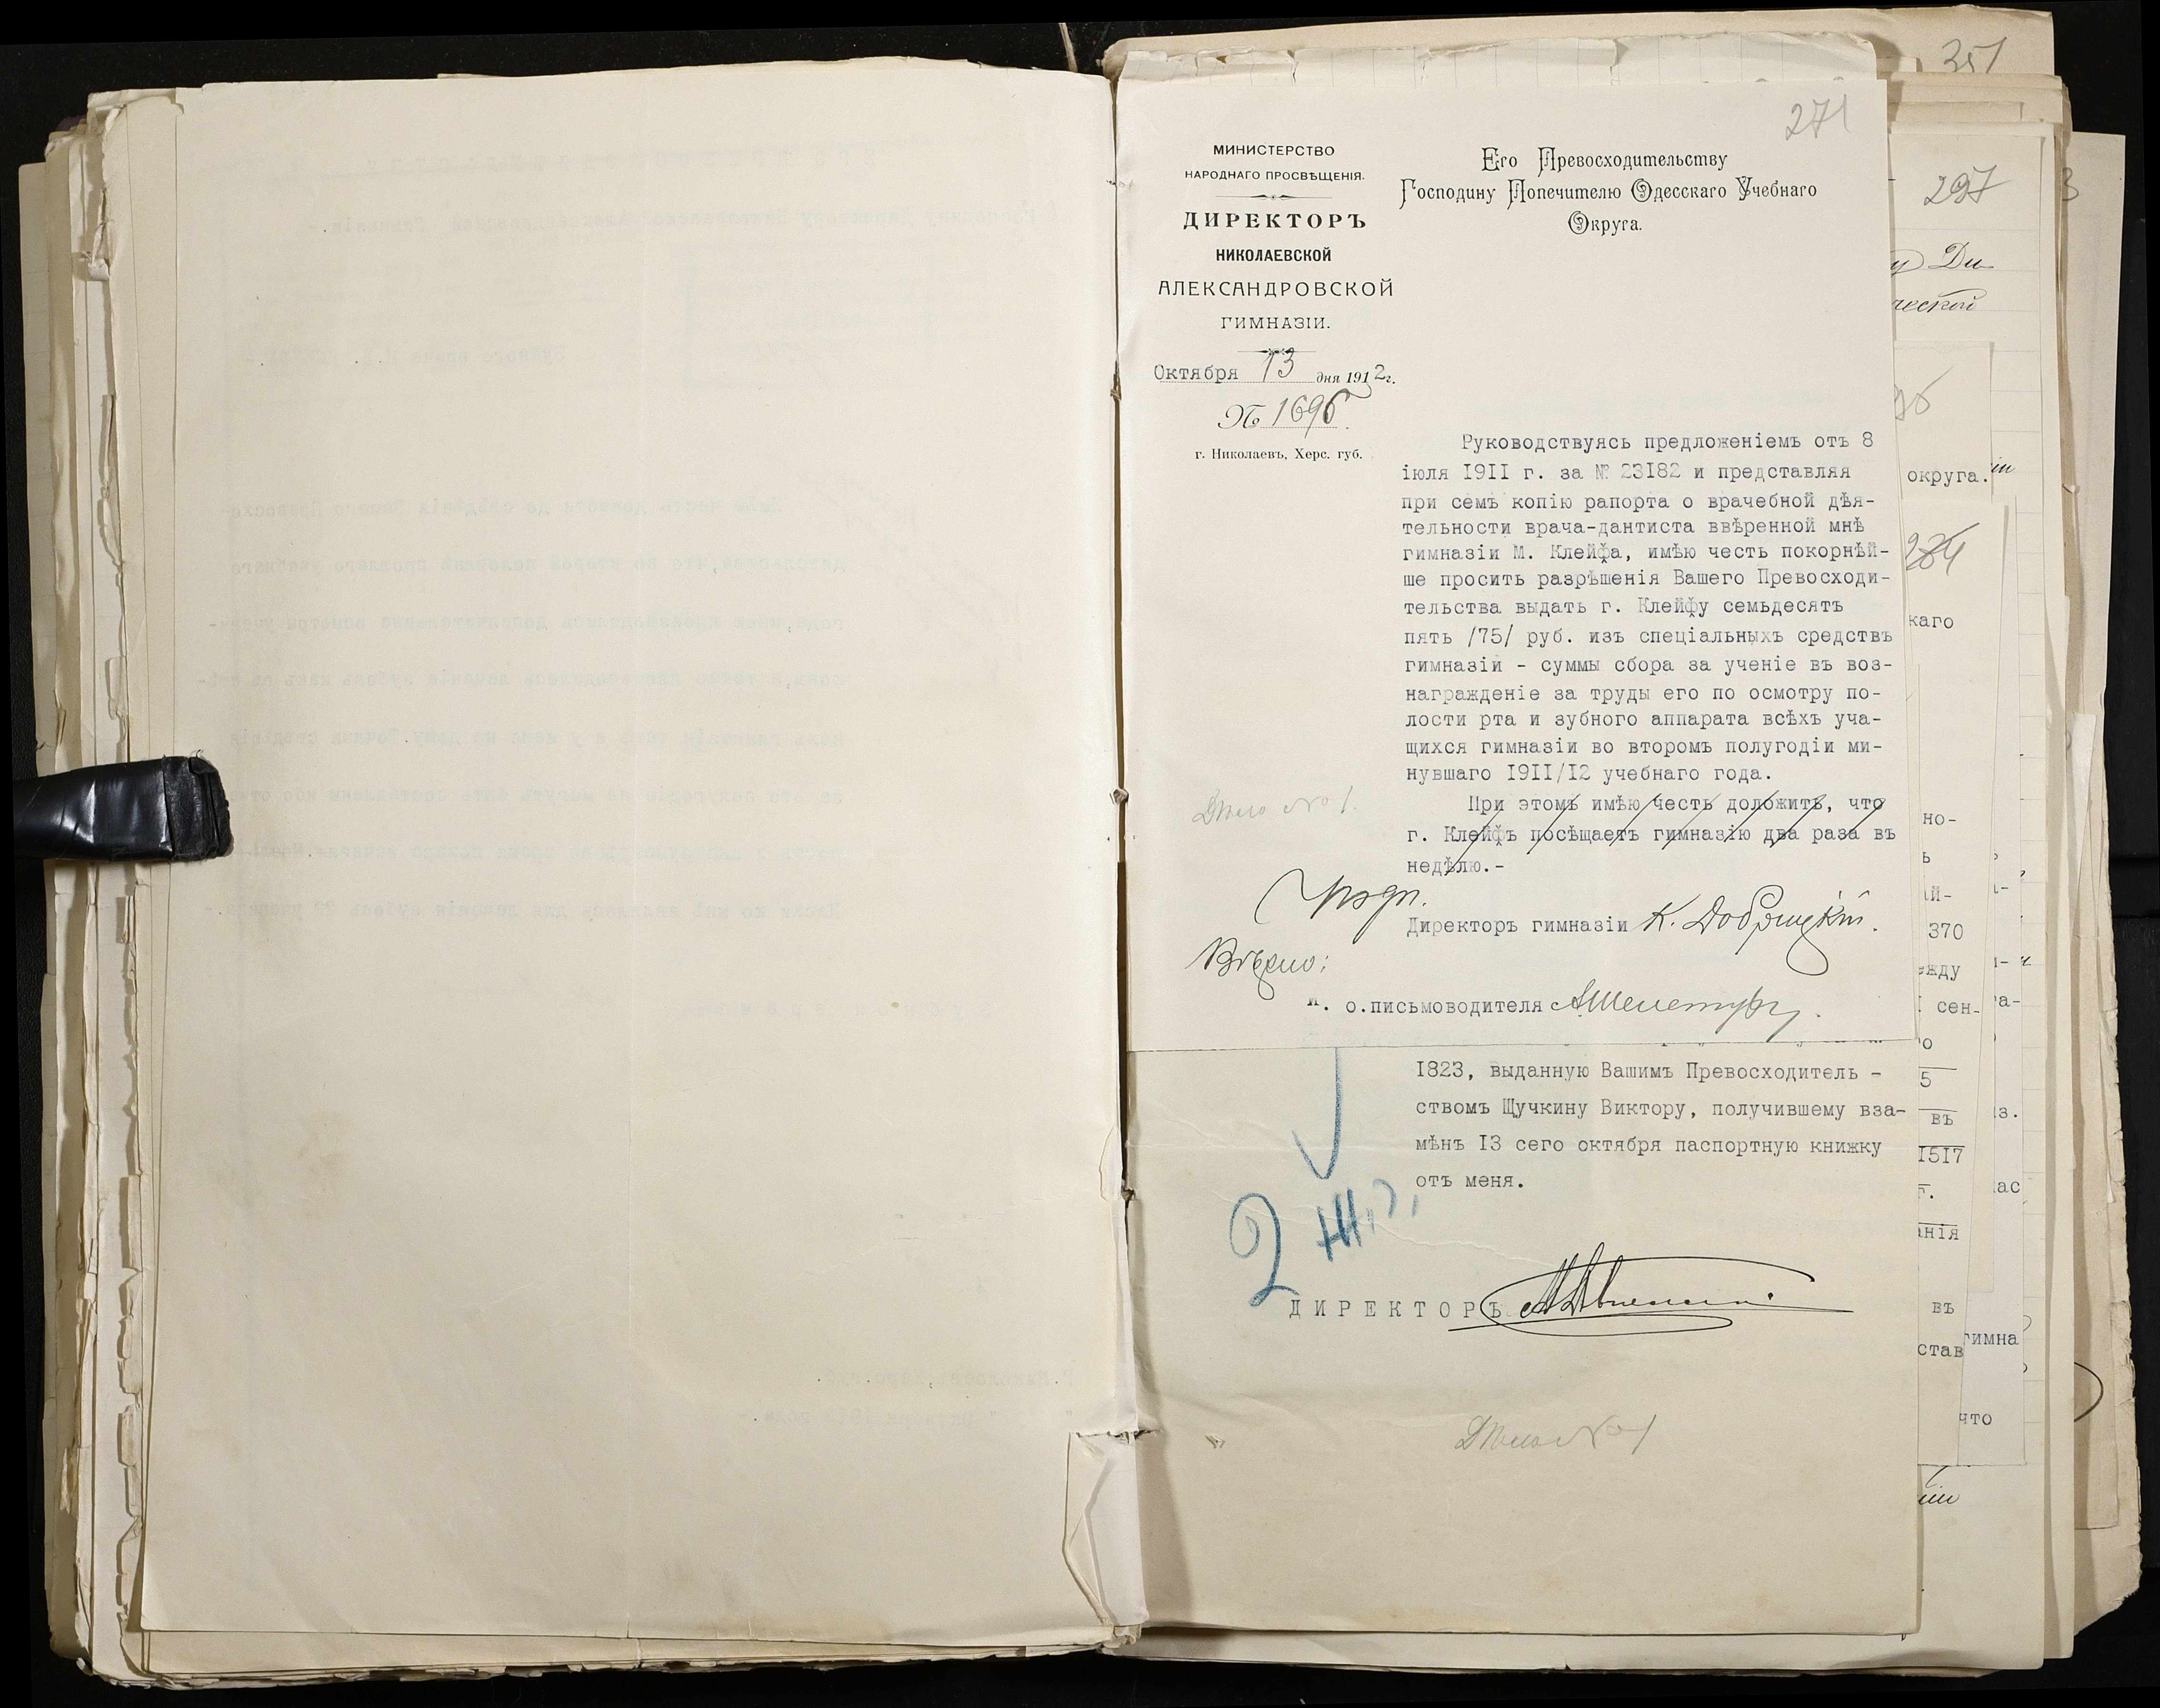 351
271
МИНИСТЕРСТВО
НАРОДНАГО ПРОСВѢЩЕНІЯ.
ДИРЕКТОРЪ
НИКОЛАЕВСКОЙ
АЛЕКСАНДРОВСКОЙ
ГИМНАЗІИ.
Октября 13 дня 1912г.
№ 1696.
г. Николаевъ, Херс. губ.
Его Превосходительству
Господину Попечителю Одесскаго Учебнаго
Округа.
Руководствуясь предложеніемъ отъ 8
іюля 1911 г. за № 23182 и представляя
при семъ копію рапорта о врачебной дѣя-
тельности врача-дантиста ввѣренной мнѣ
гимназіи М. Клейфа, имѣю честь покорнѣй-
ше просить разрѣшенія Вашего Превосходи-
тельства выдать г. Клейфу семьдесятъ
пять /75/ руб. изъ спеціальныхъ средствъ
гимназіи - суммы сбора за ученіе въ воз-
награжденіе за труды его по осмотру по-
лости рта и зубного аппарата всѣхъ уча-
щихся гимназіи во второмъ полугодіи ми-
нувшаго 1911/12 учебнаго года.
При этомъ имѣю честь доложить, что
г. Клейфъ посѣщаетъ гимназію два раза въ
недѣлю.-
Дѣло № 1.
Директоръ гимназіи К. Добрицкій.
Вѣрно:
И. о.письмоводителя
1823, выданную Вашимъ Превосходитель -
ствомъ Щучкину Виктору, получившему вза-
мѣнъ 13 сего октября паспортную книжку
отъ меня.
ДИРЕКТОРЪ
Дѣло № 1
297
у Ди-
ческой
округа.
284
каго
но-
ь
ай-
370
ежду
сен-
го
5
въ
1517
г.
анія
въ
став
гимна
что